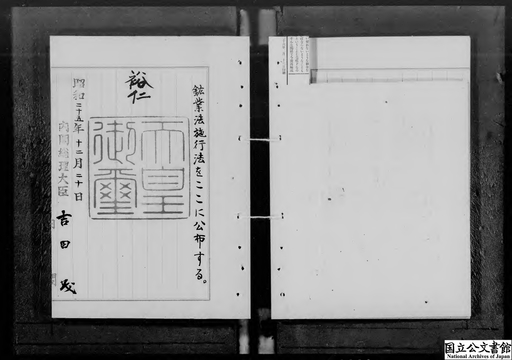 鉱業法施行法をここに公布する。
裕仁
天皇御璽
昭和二十五年十二月二十日
内閣総理大臣 吉田茂
国立公文書館
National Archives of Japan